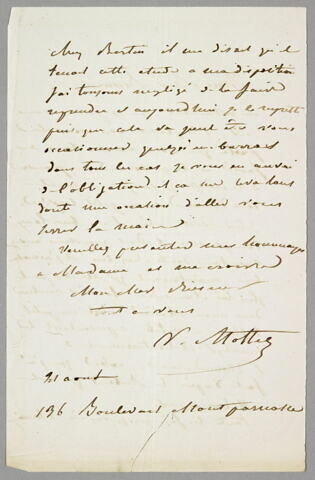 chez Bertin il me disait qu'il
tenait cette etude a ma disposition
j'ai toujours negligé de la faire
reprendre et aujourd'hui je le regrette
puisque cela va peut etre vous
occasionner quelques embarras
dans tous les cas je vous en aurai
de l'obligation et ca me
une occasion d'aller vous
serrer la main
Veuillez presenter mes hommages
a Madame et me croire
Mon cher
tout a vous
V. Mottez
21 aout
136 Boulevart Montparnasse